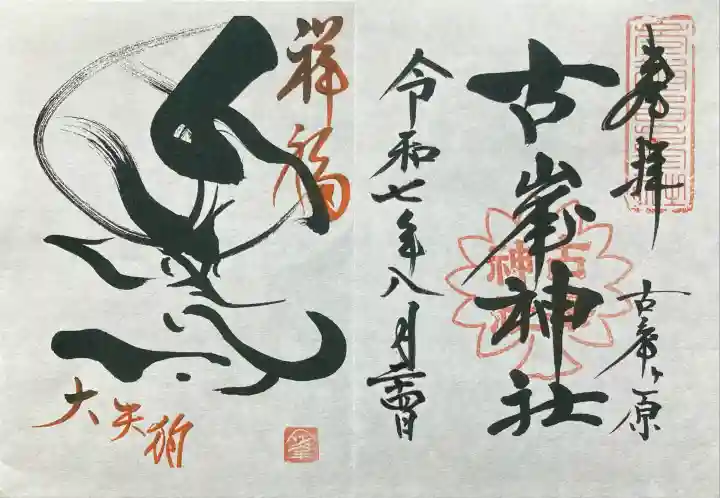 奉拝
古峯ヶ原
古峯神社
令和七年八月二十四日
祥福
大天狗